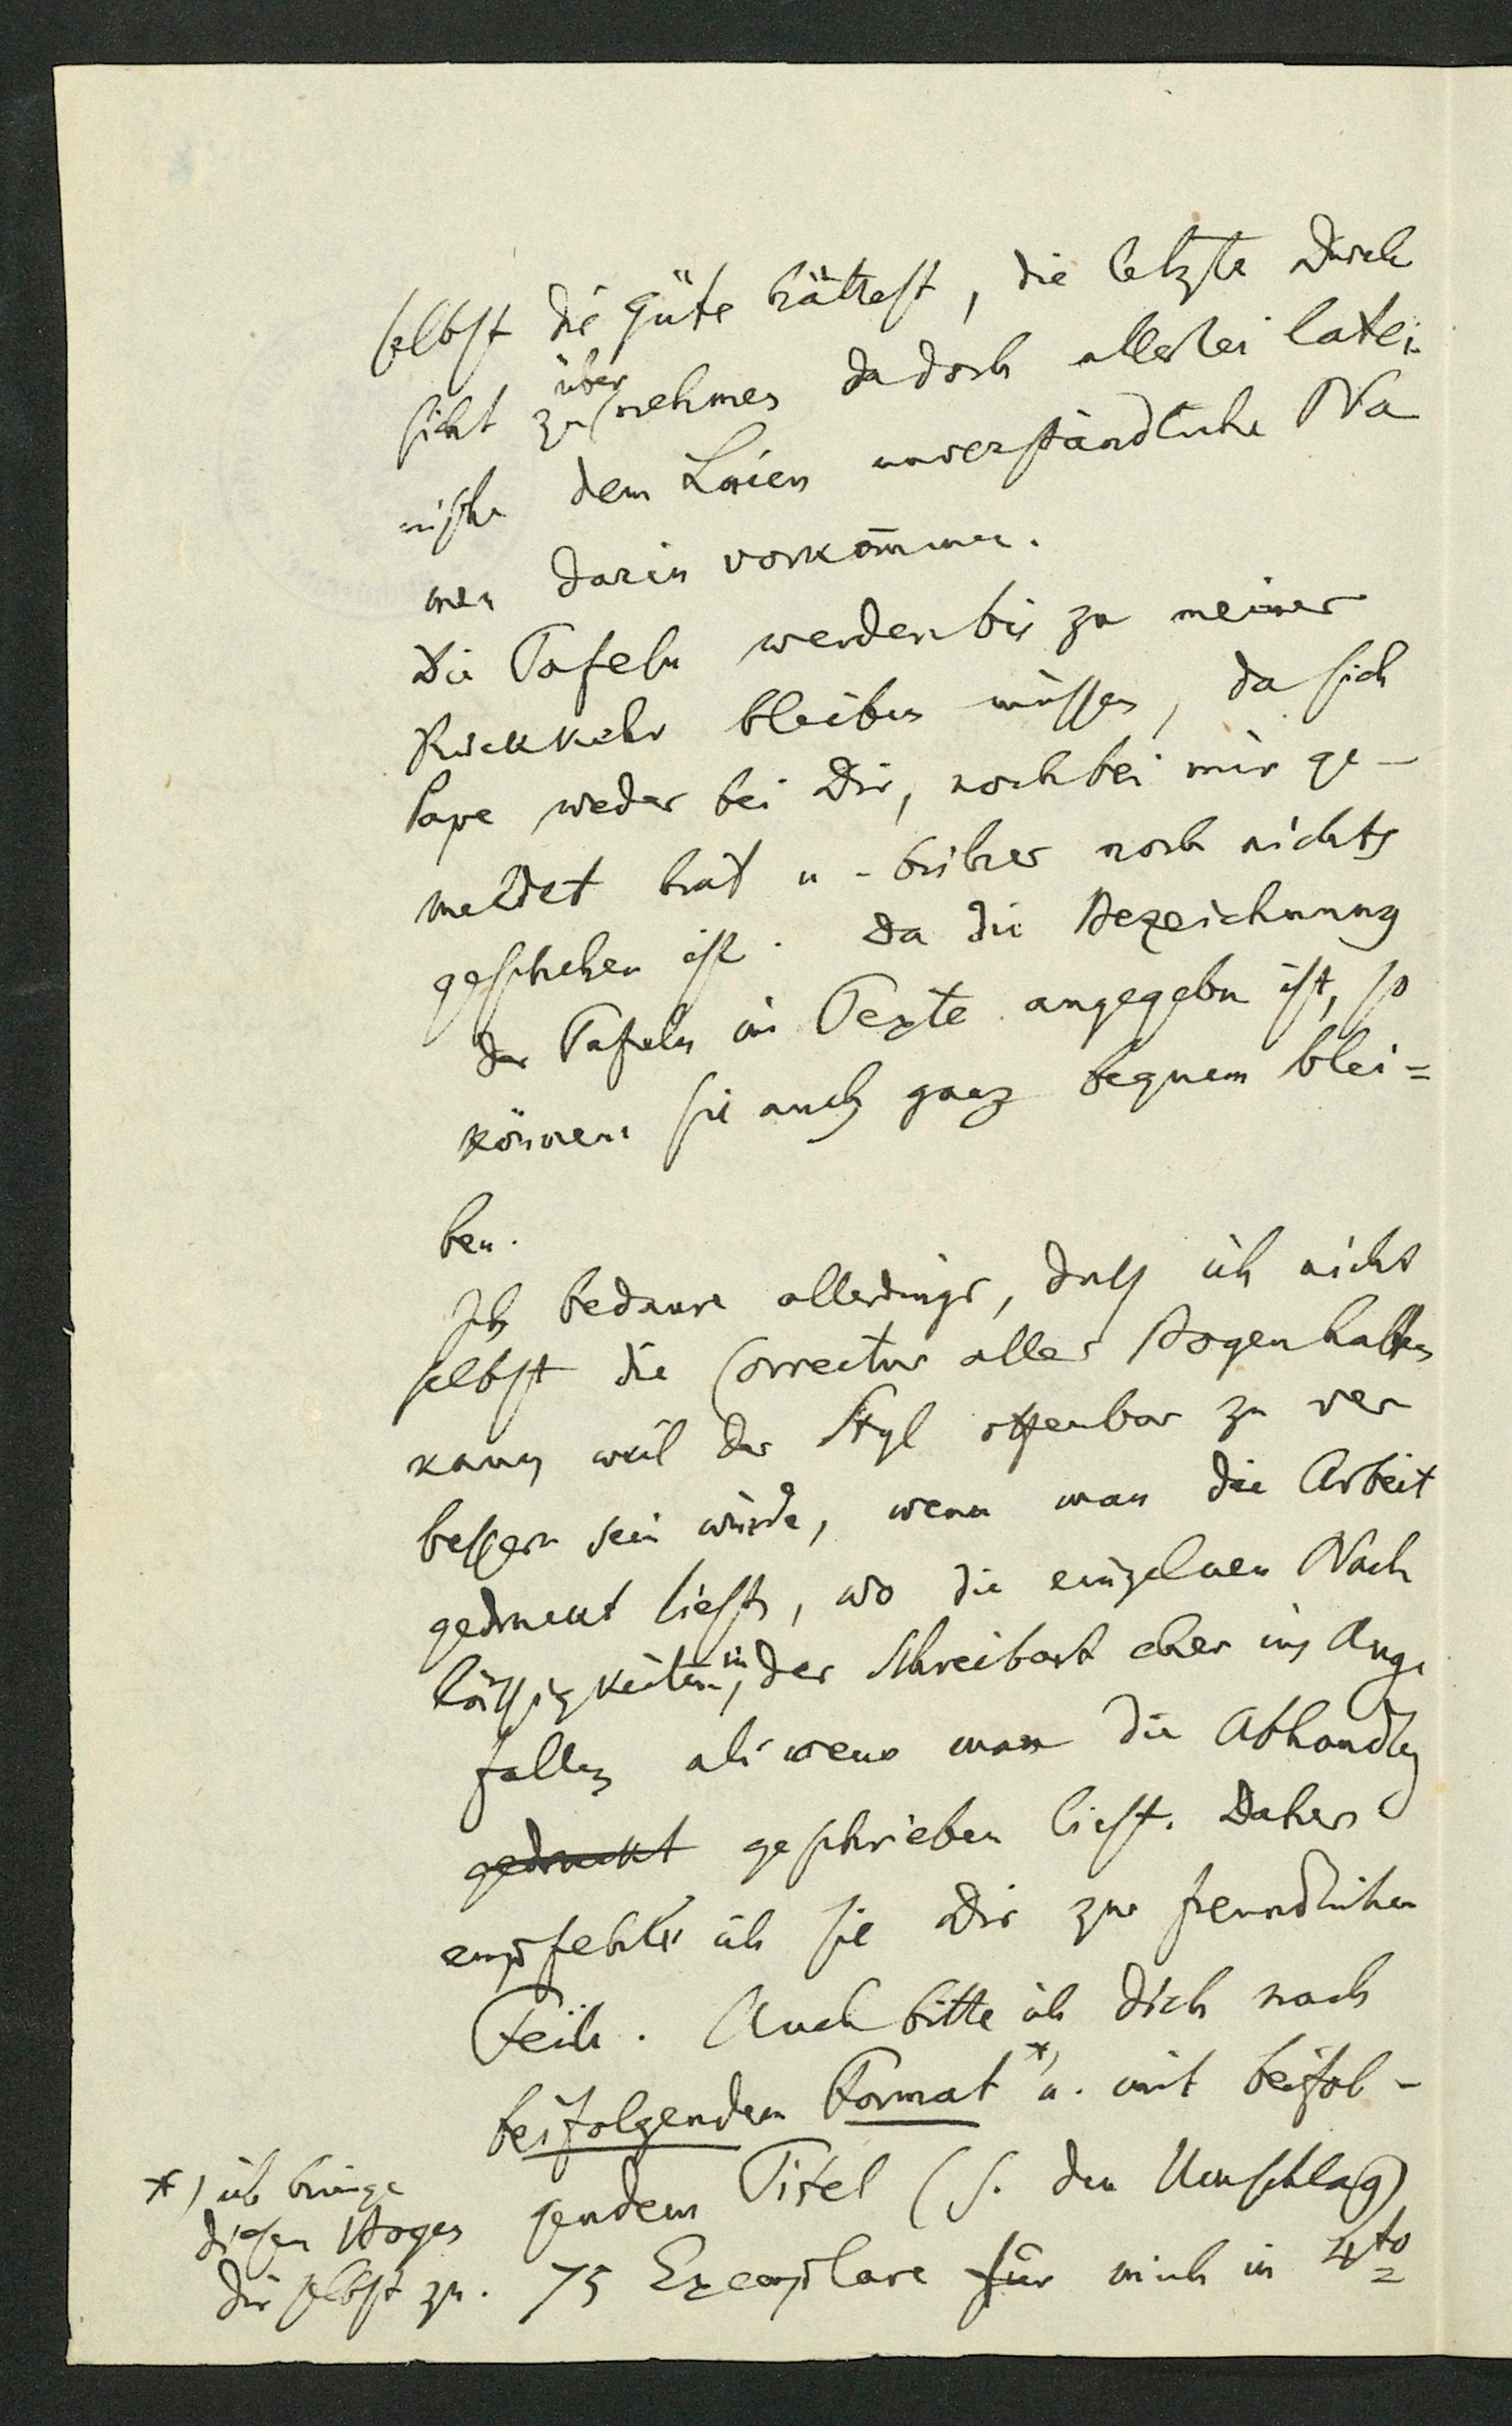 selbst die Güte hättest, die letzte Durch
sicht zu übernehmen da doch allerlei latei-
nische dem Laien unverständliche Na
men darin vorkom̄men.
Die Tafeln werden bis zu meiner
Rückkehr bleiben müssen, da sich
Pape weder bei Dir, noch bei mir ge-
meldet hat u. bisher noch nichts
geschehen ist. Da die Bezeichnung
der Tafeln im Texte angegeben ist, so
können sie auch ganz bequem blei=
ben.
Ich bedaure allerdings, daß ich nicht
selbst die Correctur aller Bogen halten
kann weil der Styl offenbar zu ver
bessern sein würde, wenn man die Arbeit
gedruckt liest, wo die einzelnen Nach
lässigkeiten in der Schreibart eher ins Auge
fallen als wenn man die Abhandlg
gedruckt geschrieben liest. Daher
empfehle ich sie Dir zur freundlichen
Feile. Auch bitte ich Dich nach
beifolgendem Format *) u. mit beifol-
gendem Titel (s. den Umschlag)
75 Exemplare für mich in 4to
*) ich bringe
diesen Bogen
Dir selbst zu.